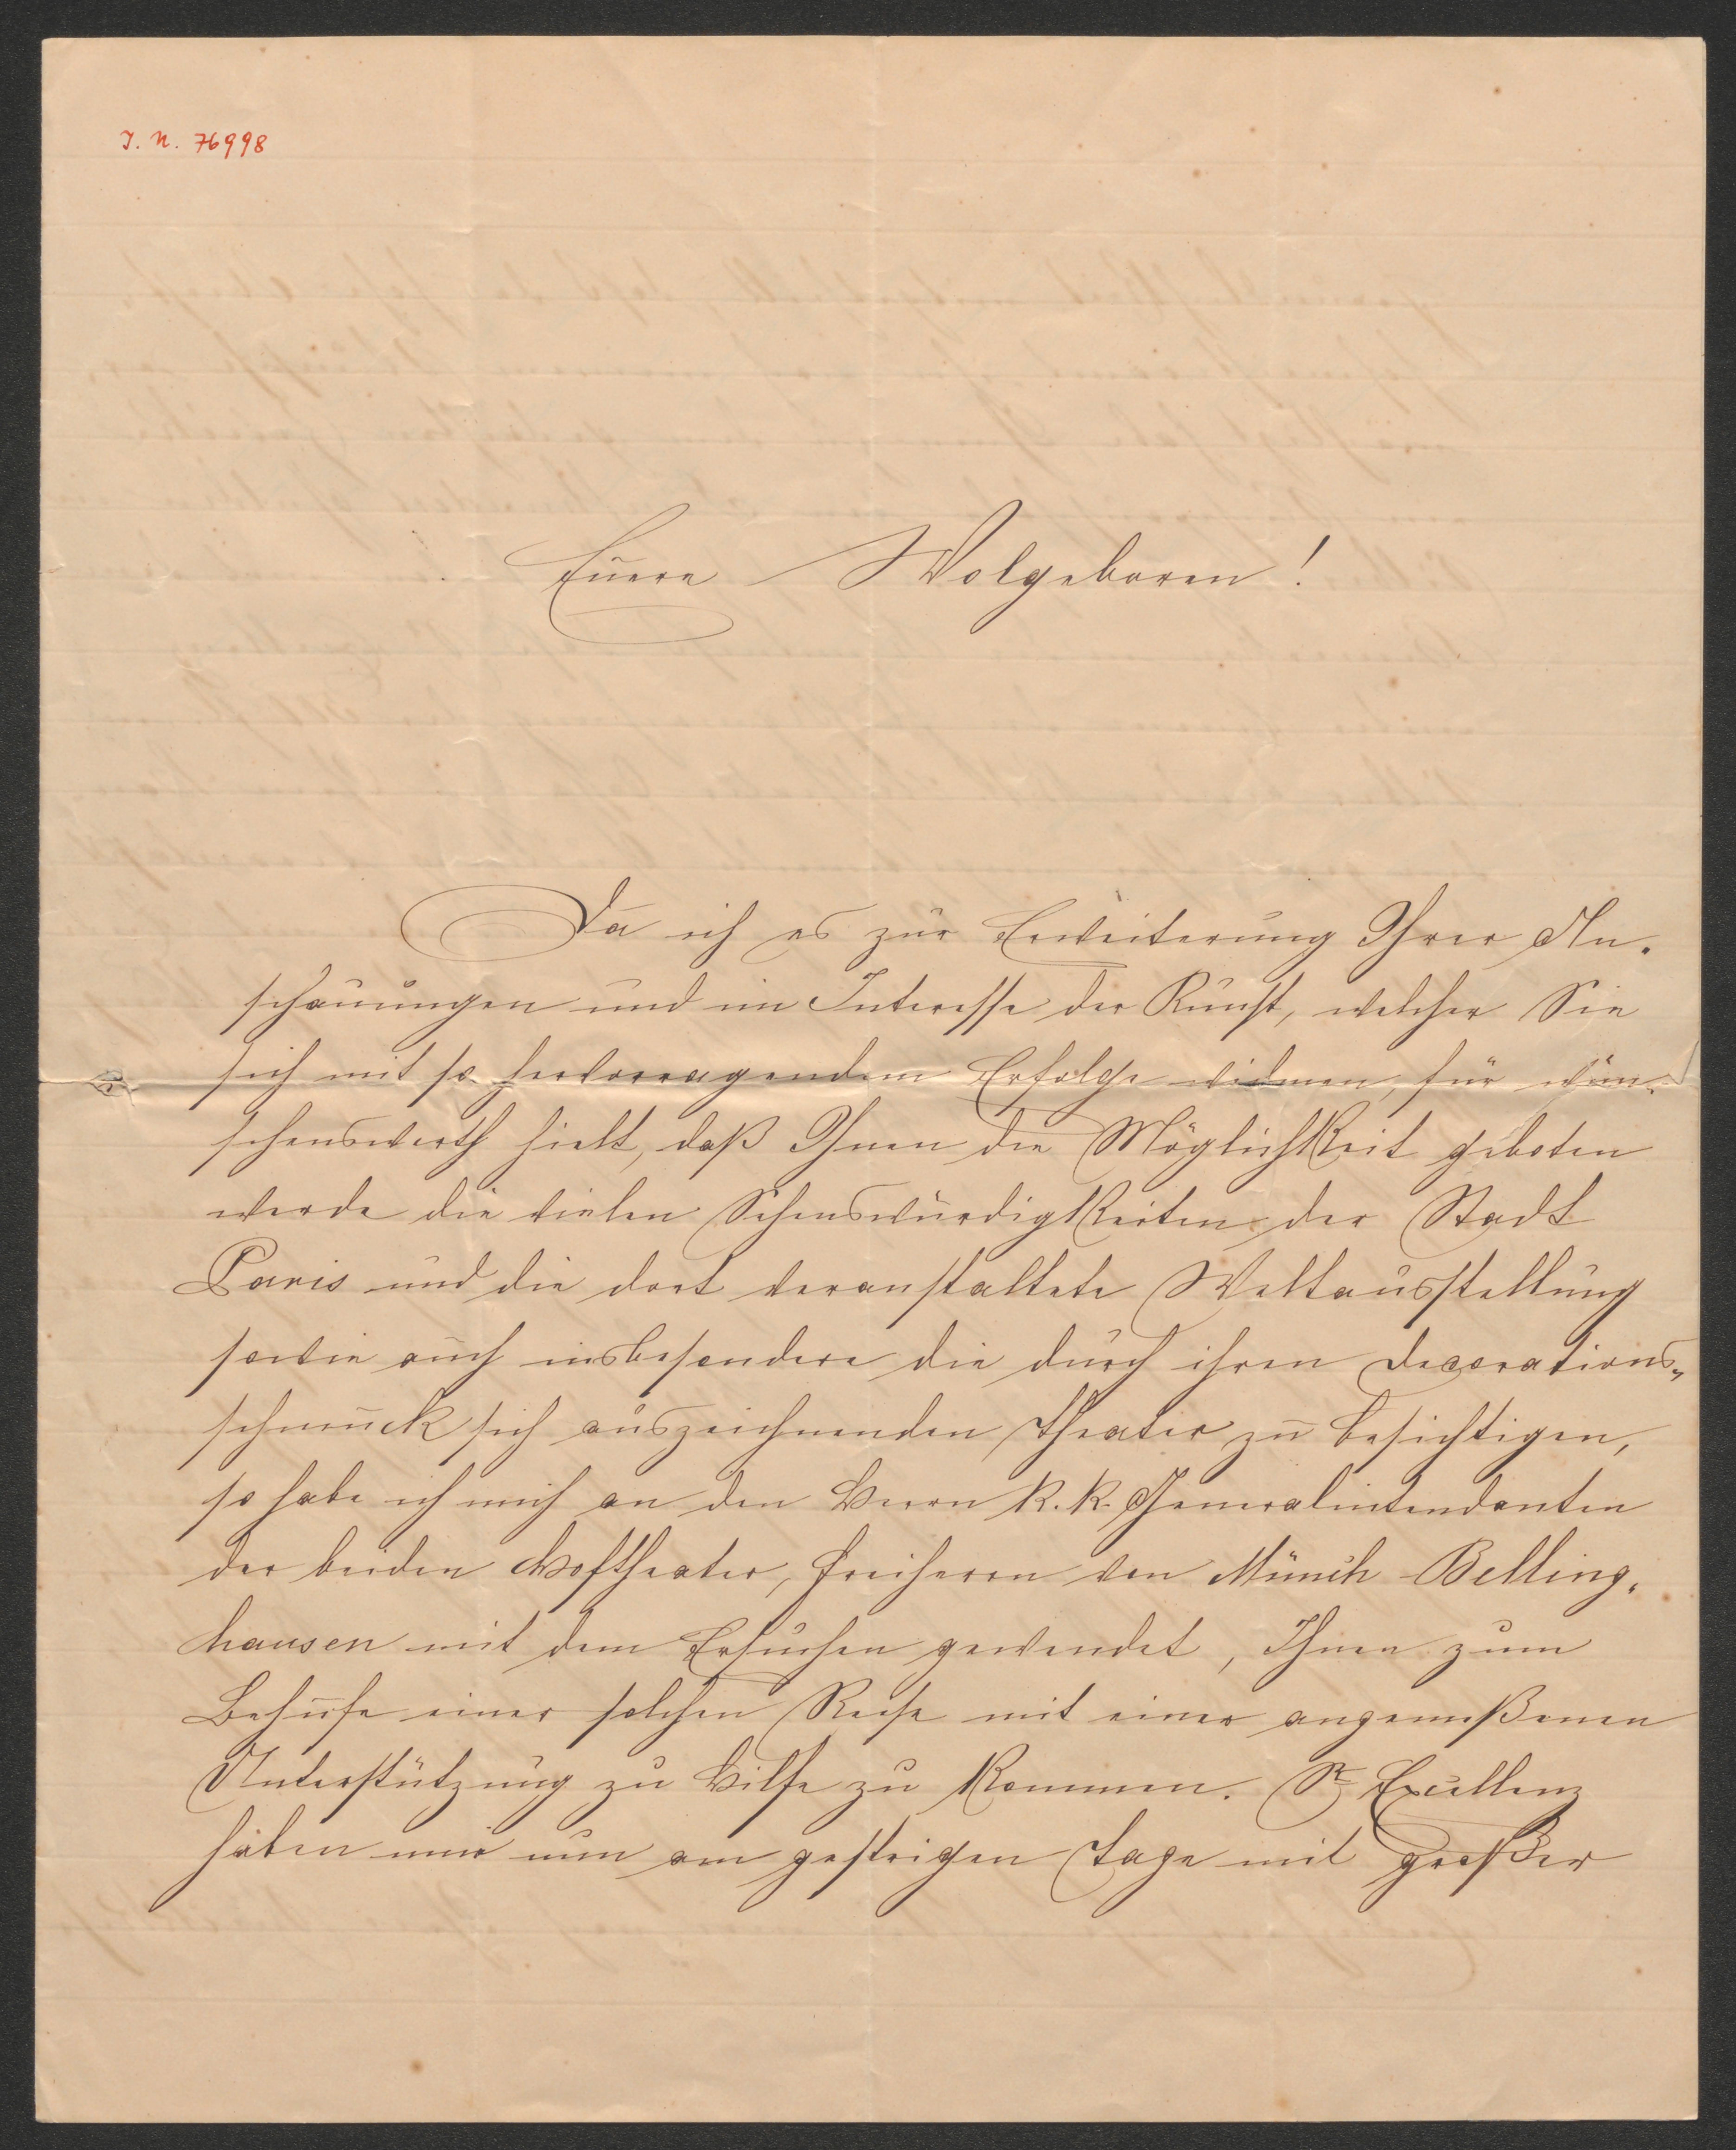 J. N. 76998
Euere Wolgeboren!
Da ich es zur Erweiterung Ihrer An-
schauungen und im Interesse der Kunst, welcher Sie
sich mit so hervorragendem Erfolge widmen, für wün-
schenswerth hielt, daß Ihnen die Möglichkeit geboten
werde die vielen Sehenswürdigkeiten der Stadt
Paris und die dort veranstaltete Weltausstellung
sowie auch insbesondere die durch ihren Decorations-
schmuck sich auszeichnenden Theater zu besichtigen,
so habe ich mich an den Herrn k. k. Generalintendanten
der beiden Hoftheater, Freiherrn von Münch-Belling-
hausen mit dem Ersuchen gewendet, Ihnen zum
Behufe einer solchen Reise mit einer angemeßenen
Unterstützung zu Hilfe zu kommen. Se Excellenz
haben mir nun am gestrigen Tage mit großer